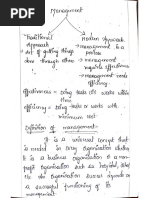 Management
Traditional
Approach
Art of getting things
done through others
Modern Approach
→ management is a
process
→ management
requires effectiveness
→ management needs
efficiency
effectiveness = doing tasks or works within
time
efficiency = doing tasks or works with
minimum cost
Definition of management:-
It is a universal concept that
is needed in every organisation whether
it is a business organisation or a non-
profit organisation such as hospital, NGO
etc. An organisation success depends on
a successful functioning of its
management.